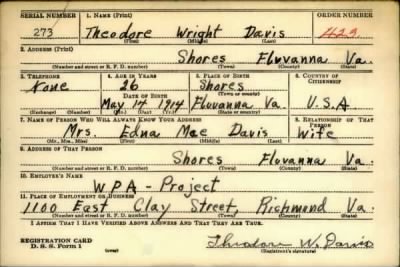 SERIAL NUMBER 1. NAME (Print) ORDER NUMBER
273 Theodore Wright Davis 423
(First) (Middle) (Last)
2. ADDRESS (Print)
Shores Fluvanna Va.
(Number and street or R. F. D. number) (Town) (County) (State)
3. TELEPHONE 4. AGE IN YEARS 5. PLACE OF BIRTH 6. COUNTRY OF CITIZENSHIP
None 26 Shores
DATE OF BIRTH (Town or county)
May 14 1914 Fluvanna Va. U.S.A
(Exchange) (Number) (Mo.) (Day) (Yr.) (State or country)
7. NAME OF PERSON WHO WILL ALWAYS KNOW YOUR ADDRESS 8. RELATIONSHIP OF THAT PERSON
Mrs. Edna Mae Davis Wife
(Mr., Mrs., Miss) (First) (Middle) (Last)
9. ADDRESS OF THAT PERSON
Shores Fluvanna Va.
(Number and street or R. F. D. number) (Town) (County) (State)
10. EMPLOYER'S NAME
WPA - Project
11. PLACE OF EMPLOYMENT OR BUSINESS
1100 East Clay Street, Richmond Va.
(Number and street or R. F. D. number) (Town) (County) (State)
I AFFIRM THAT I HAVE VERIFIED ABOVE ANSWERS AND THAT THEY ARE TRUE.
REGISTRATION CARD
D. S. S. Form 1 Theodore W. Davis
(over) (Registrant's signature)